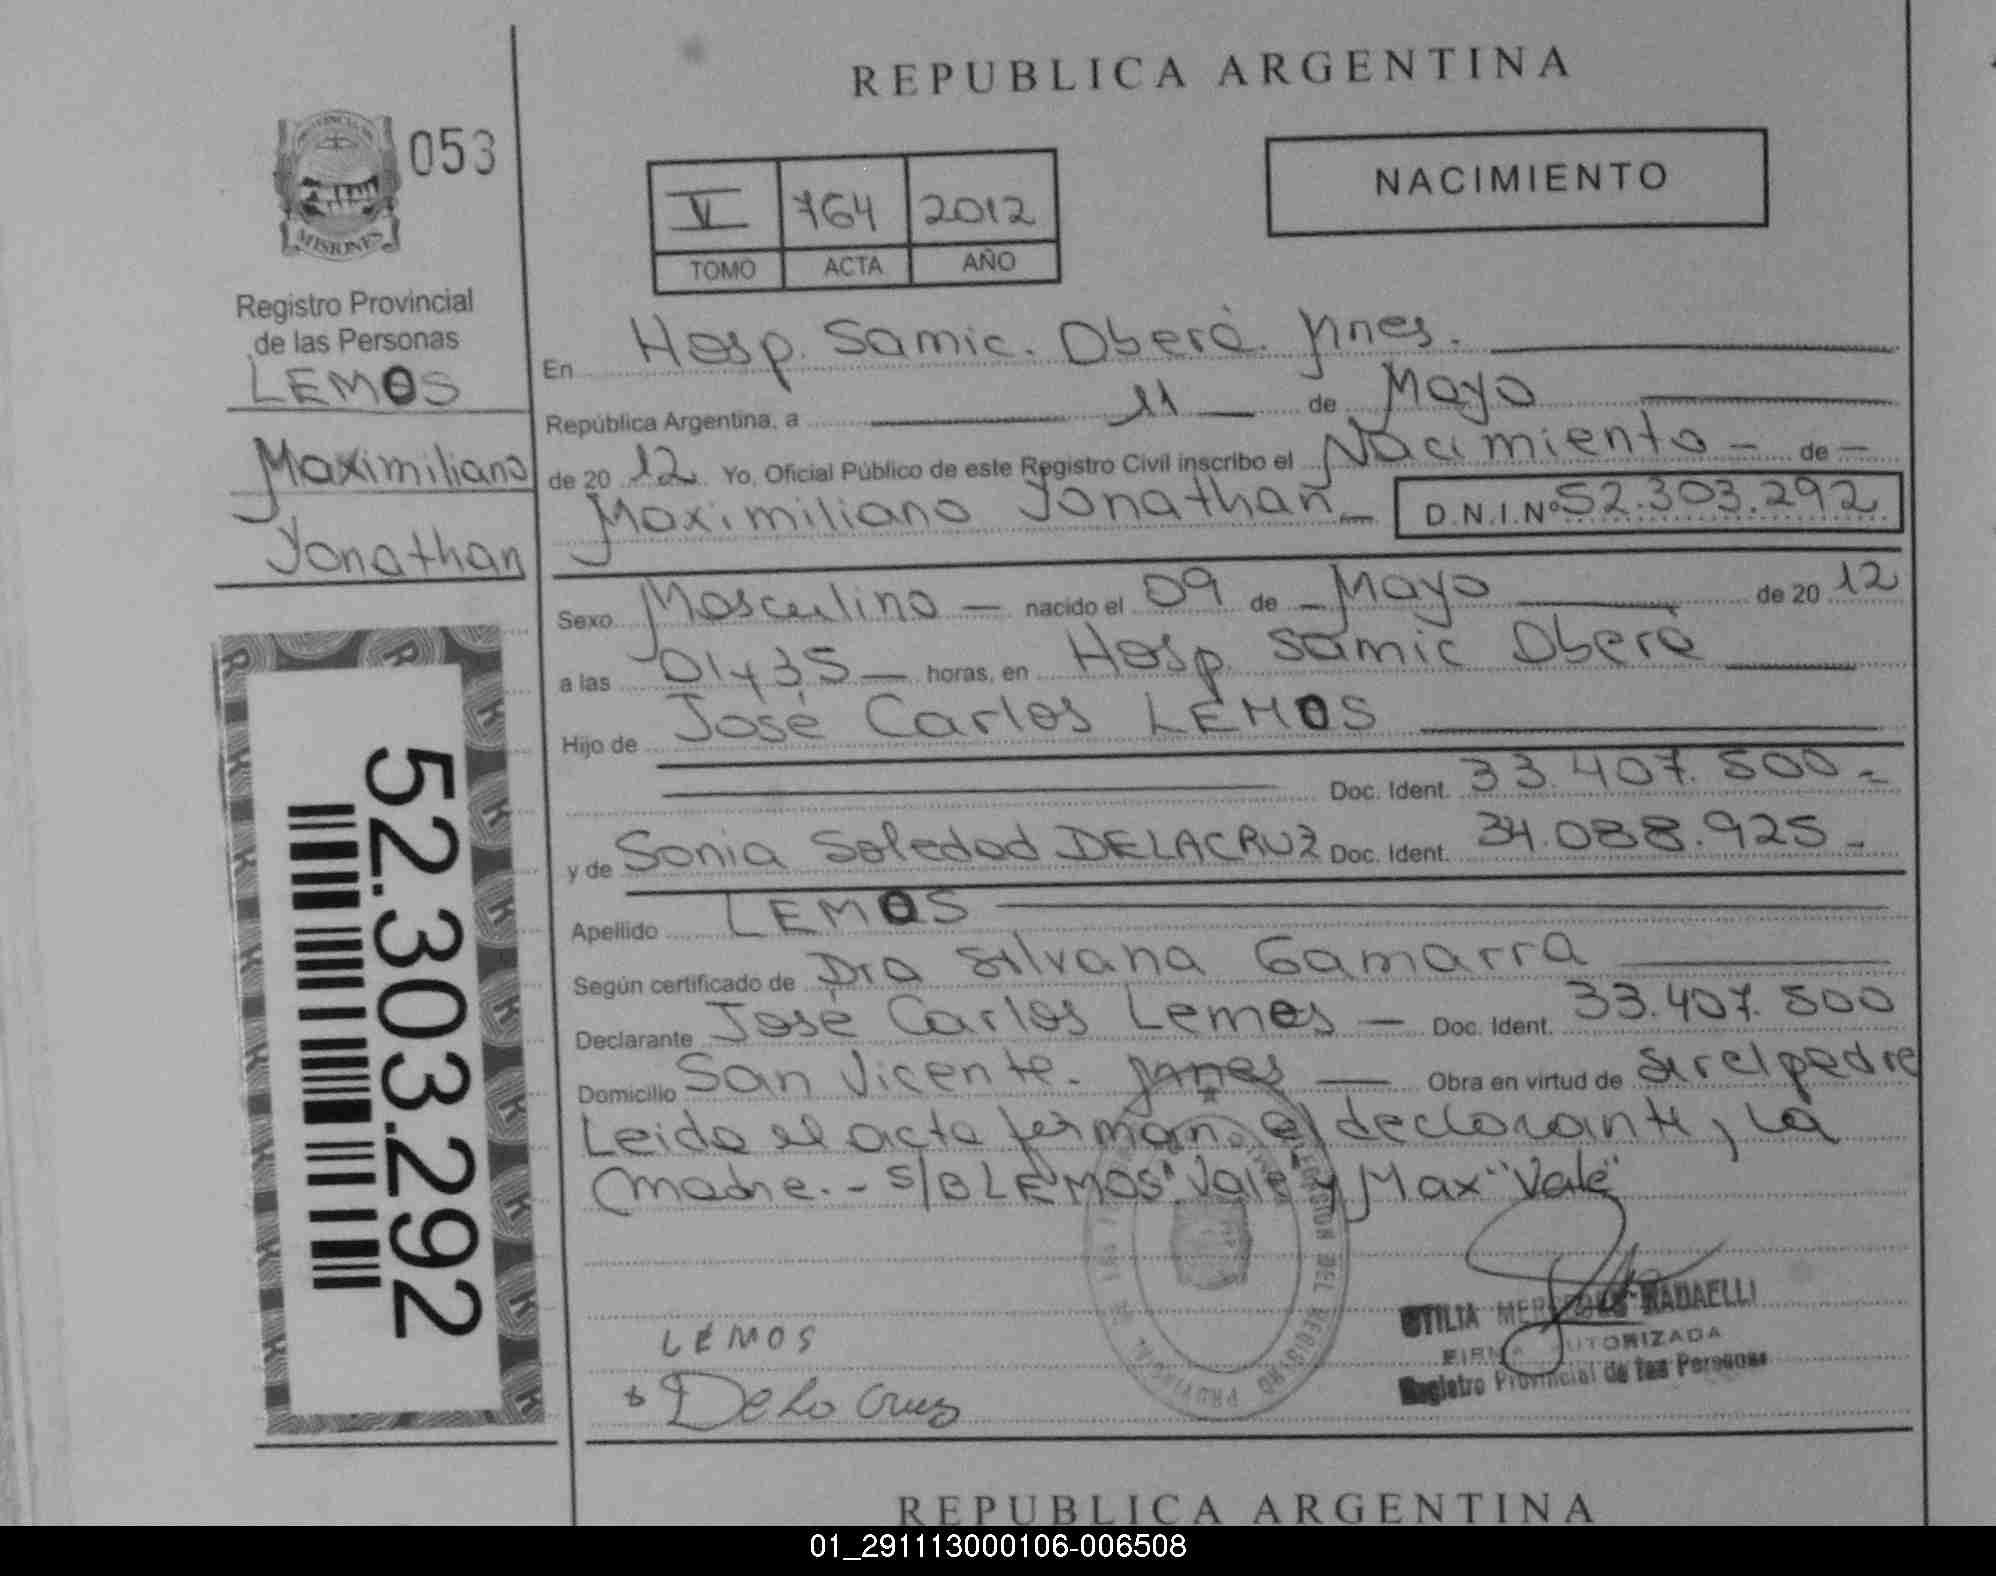 REPUBLICA ARGENTINA
053
MISIONES
Registro Provincial
de las Personas
LEMOS
Maximiliano
Jonathan
52.303.292
V 764 2012
TOMO ACTA AÑO
NACIMIENTO
En Hosp. Samic. Oberá. Mnes.
República Argentina, a 11 de Mayo
de 20 12 Yo, Oficial Público de este Registro Civil inscribo el Nacimiento - de -
Maximiliano Jonathan D.N.I.Nº 52.303.292
Sexo Masculino nacido el 09 de Mayo de 20 12
a las 01 y 35 horas, en Hosp. Samic Oberá
Hijo de José Carlos LEMOS
Doc. Ident. 33.407.500.-
y de Sonia Soledad DELACRUZ Doc. Ident. 34.088.925.-
Apellido LEMOS
Según certificado de Dra Silvana Gamarra
Declarante José Carlos Lemos - Doc. Ident. 33.407.500
Domicilio San Vicente. Mnes - Obra en virtud de ser el padre
Leida el acta firman el declarante, la
madre. - S/B LEMOS "Vale" y Max "Vale"
LEMOS
De La Cruz
OTILIA MERCEDES RADAELLI
FIRMA AUTORIZADA
Registro Provincial de las Personas
REPUBLICA ARGENTINA
01_291113000106-006508